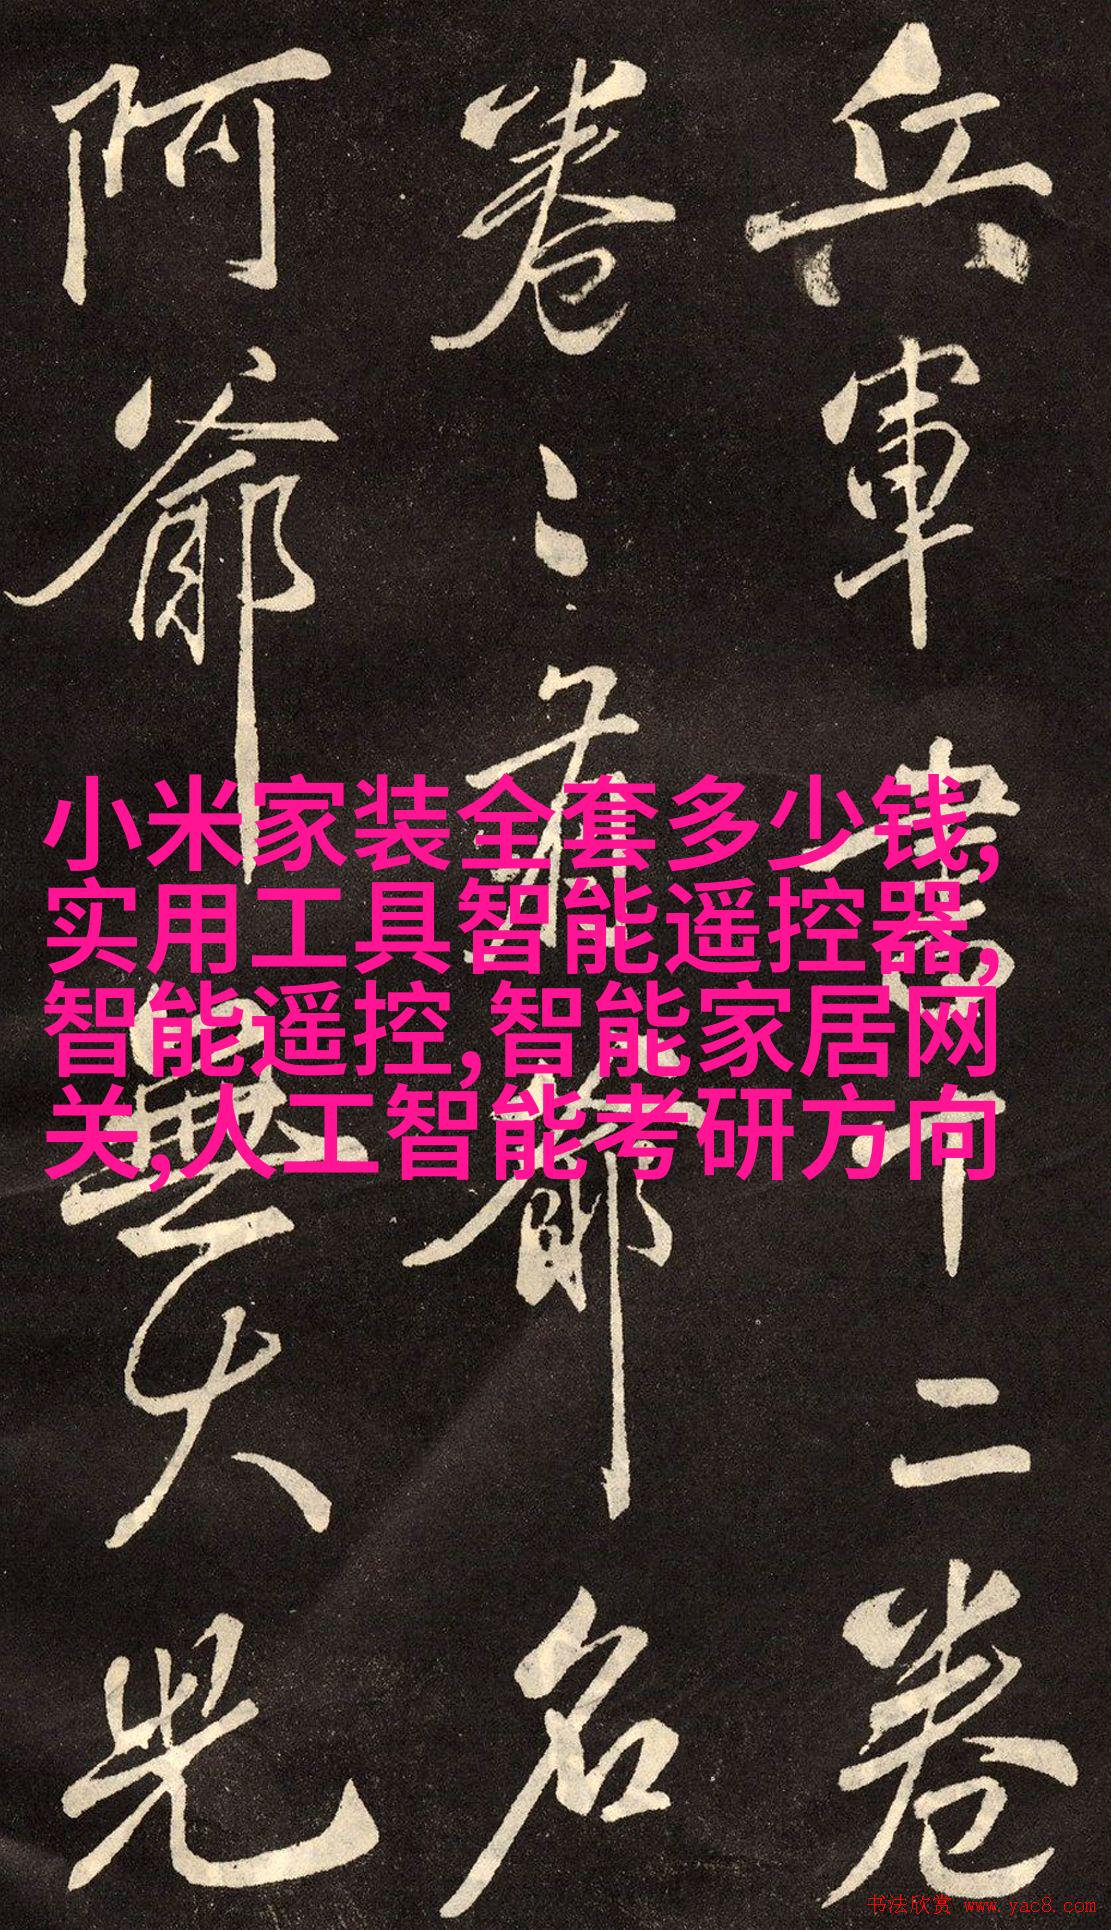 兵軍書十二卷
卷卷有爺名
阿爺無大兒
小米家装全套多少钱,
实用工具智能遥控器,
智能遥控,智能家居网
关,人工智能考研方向
书法欣赏 www.yac8.com